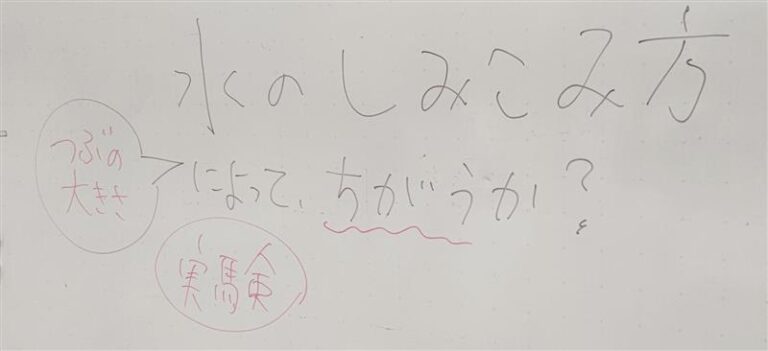 水のしみこみ方
つぶの
大きさ
によって、ちがうか?
実験